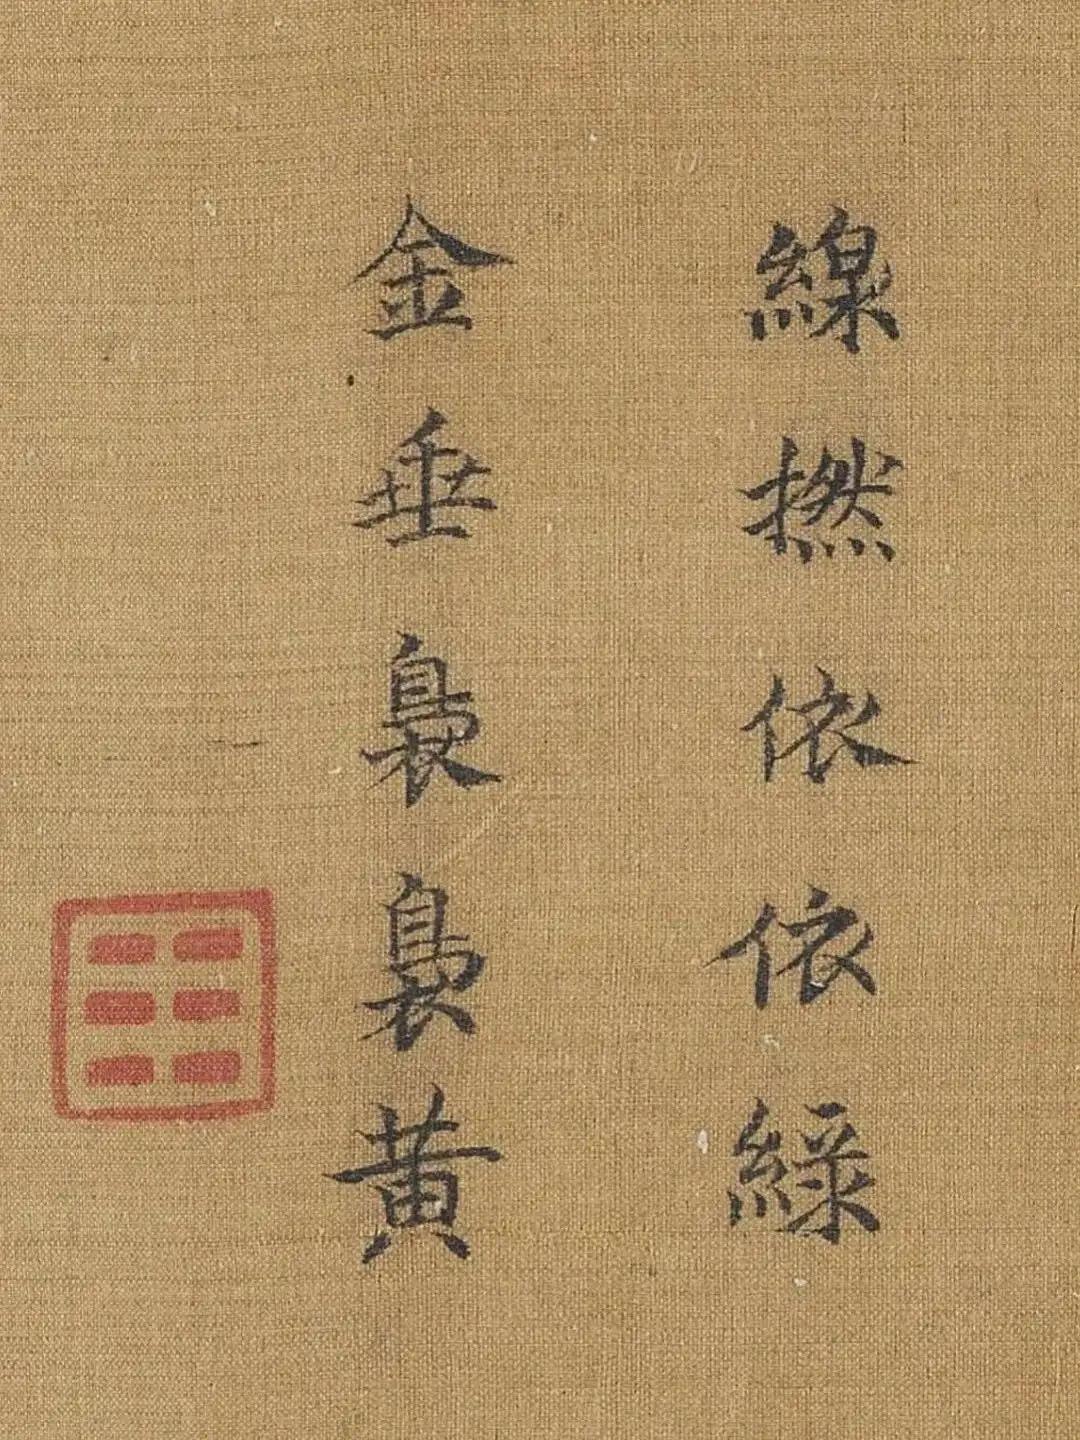 線撚依依綠
金垂裊裊黃